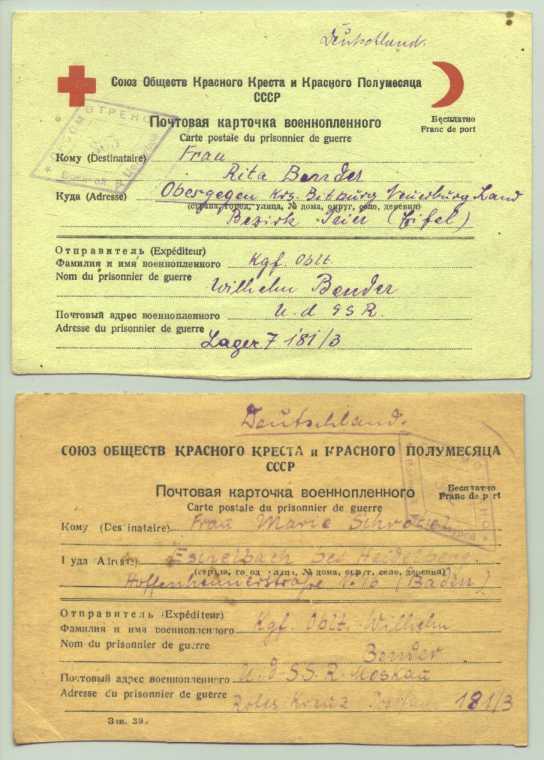 Deutschland.
Союз Обществ Красного Креста и Красного Полумесяца
СССР
Почтовая карточка военнопленного
Carte postale du prisonnier de guerre
Бесплатно
Franc de port
Кому (Destinataire) Frau
Rita Bender
Куда (Adresse) Obergegen Krs. Bitburg Neuerburg Land
(страна, город, улица, № дома, округ, село, деревня)
Bezirk (Eifel)
Отправитель (Expéditeur)
Фамилия и имя военнопленного Kgf. Oblt.
Nom du prisonnier de guerre
Wilhelm Bender
Почтовый адрес военнопленного U. d SSR.
Adresse du prisonnier de guerre
Lager 7 181/3
Deutschland.
СОЮЗ ОБЩЕСТВ КРАСНОГО КРЕСТА и КРАСНОГО ПОЛУМЕСЯЦА
СССР
Почтовая карточка военнопленного
Carte postale du prisonnier de guerre
Бесплатно
Franc de port
Кому (Des inataire) Frau Marie
bei Heidelberg.
(страна, город, улица, № дома, округ, село, деревня)
Hoffenheimerstraße № 16 (Baden)
Отправитель (Expéditeur)
Фамилия и имя военнопленного Kgf. Oblt. Wilhelm
Nom du prisonnier de guerre
Bender
Почтовый адрес военнопленного U. d. SS. R. Moskau
Adresse du prisonnier de guerre
Rotes Kreuz 181/3
Зак. 39.